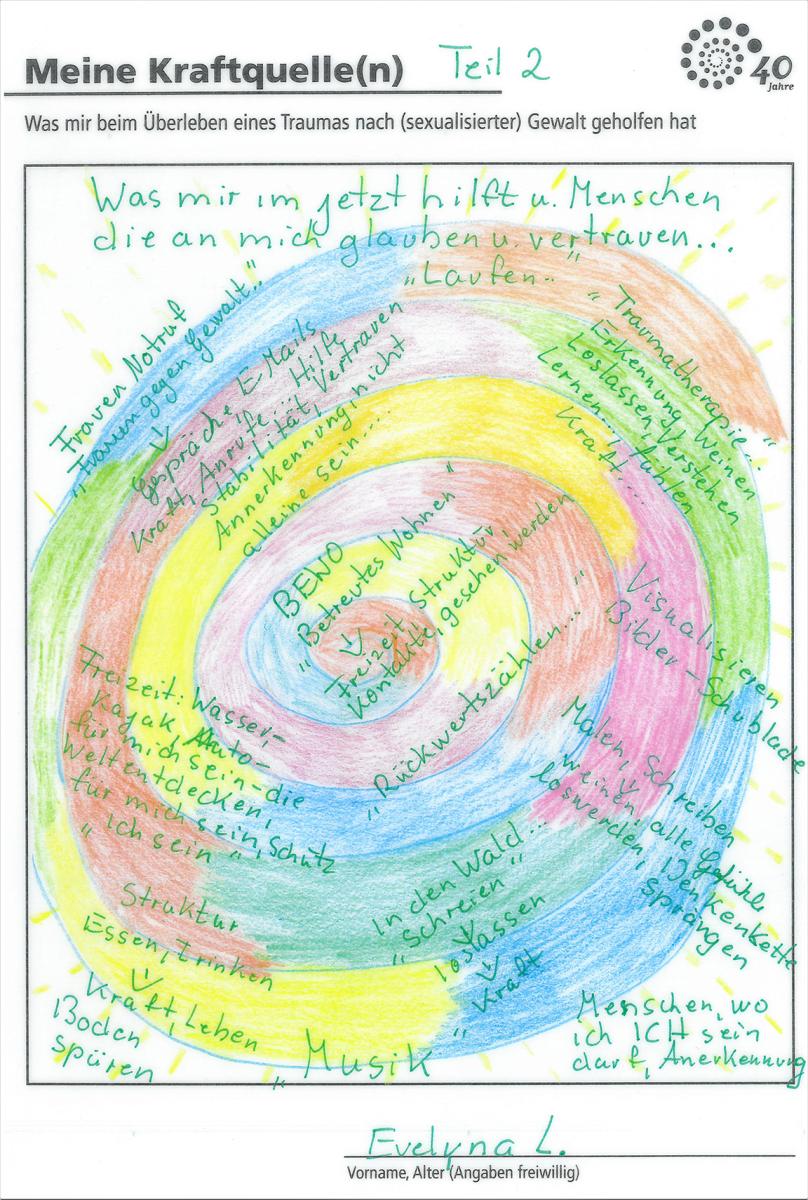 Meine Kraftquelle(n) Teil 2
40
Jahre
Was mir beim Überleben eines Traumas nach (sexualisierter) Gewalt geholfen hat
Was mir im jetzt hilft u. Menschen
die an mich glauben u. vertrauen...
„Laufen..“
Frauen Notruf
„Frauen gegen Gewalt..“
Gespräche, E-Mails
Kraft, Anrufe... Hilfe
Stabilität, Vertrauen
Annerkennung, nicht
alleine sein....
„Traumatherapie..“
Erkennung, Weinen
Loslassen, Verstehen
Lernen..., fühlen
Kraft....
BEWO
„Betreutes Wohnen“
Freizeit, Struktur
Kontakte, gesehen werden
„Rückwertszählen...“
Visualisieren
Bilder-Schublade
Malen, Schreiben
weinen, alle Gefühle
loswerden, Denkenkette
Sprängen
Freizeit: Wasser,-
Kajak, Auto-
für mich sein - die
Welt entdecken,
für mich sein, Schutz
„Ich sein“
In den Wald...
„Schreien“
loslassen
Kraft
Struktur
Essen, Trinken
Kraft, Leben
Boden
spüren
„Musik“
Menschen, wo
ich ICH sein
darf, Anerkennung
Evelyna L.
Vorname, Alter (Angaben freiwillig)